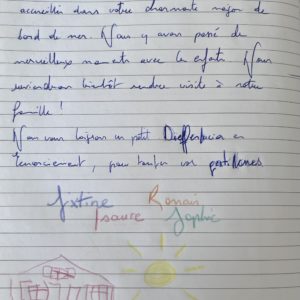 accueillis dans votre charmante maison de
bord de mer. Nous y avons passé de
merveilleux moments avec les enfants. Nous
reviendrons bientôt rendre visite à notre
famille !
Nous vous laissons un petit Dieffenbachia en
remerciement, pour tenir vos
Romain
Isaure Sophie